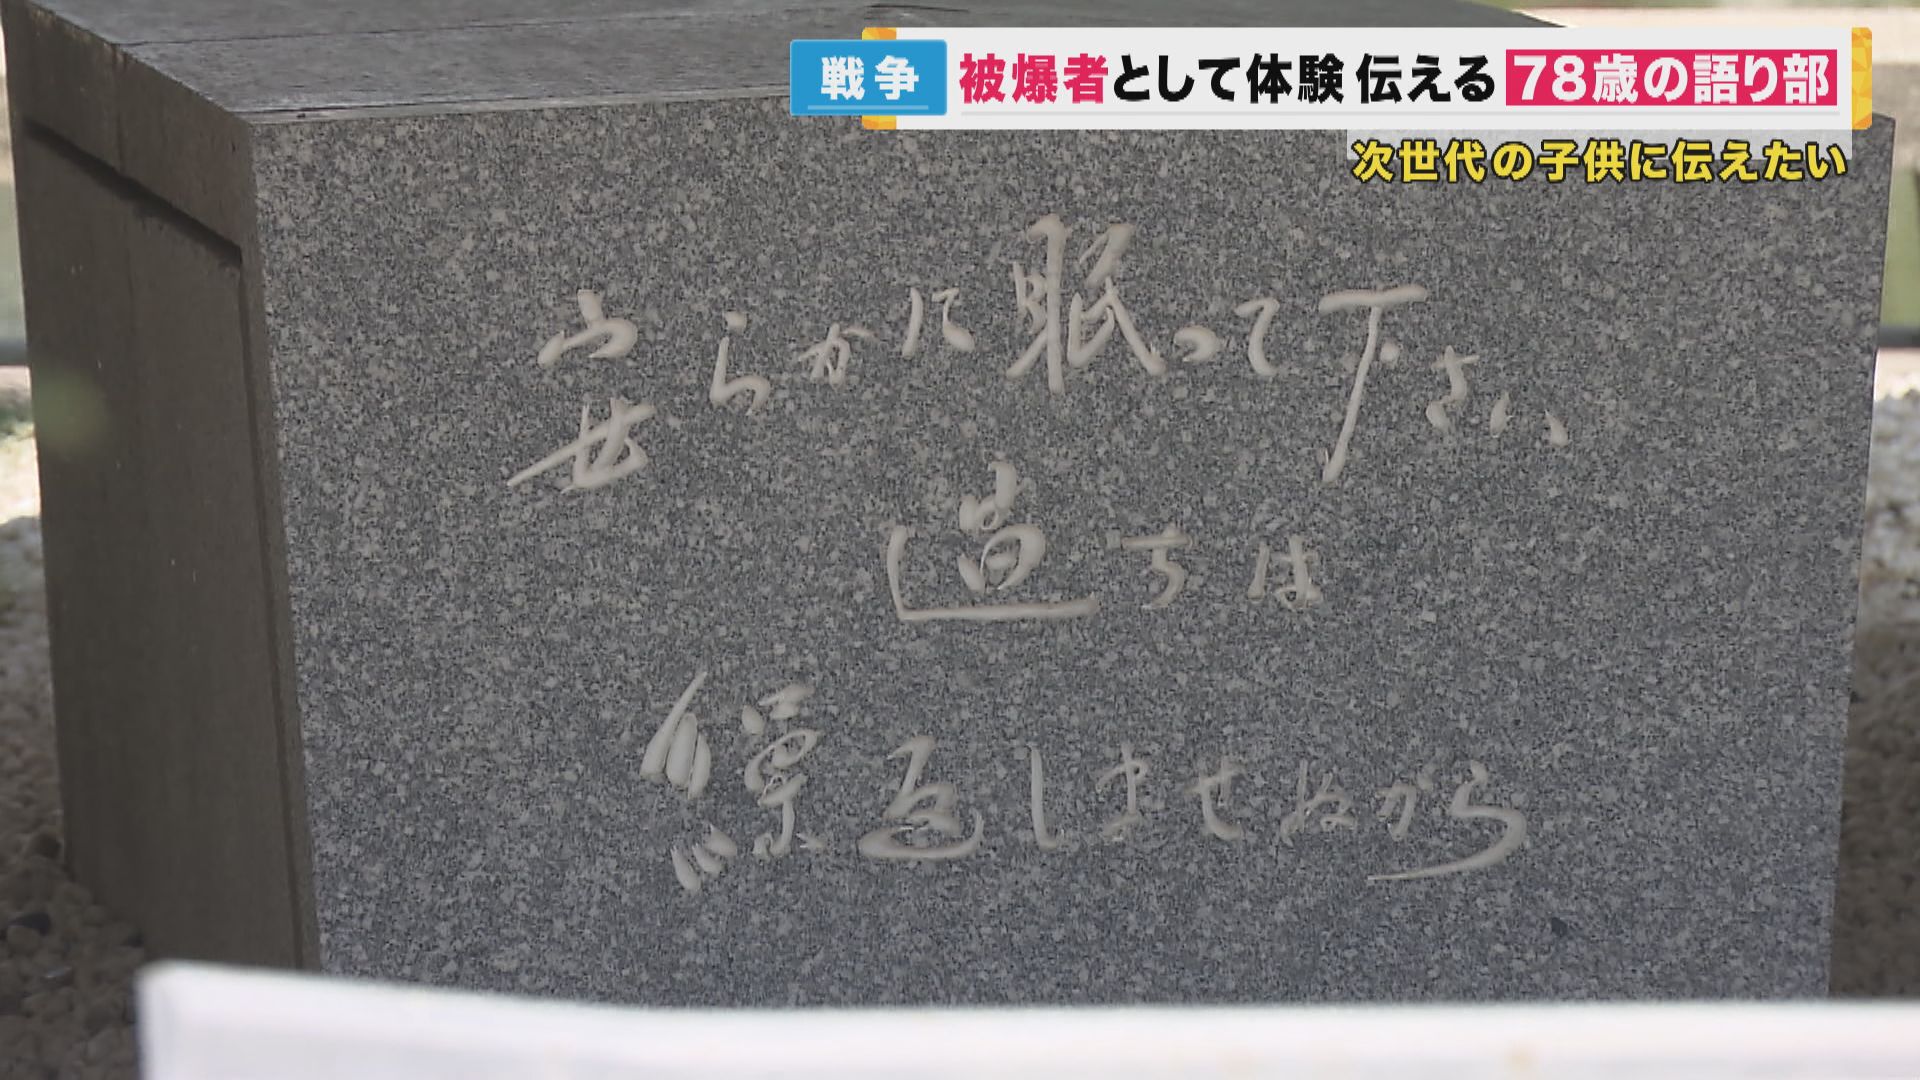 戦争
被爆者として体験 伝える 78歳の語り部
次世代の子供に伝えたい
安らかに眠って下さい
過ちは
繰返しませぬから